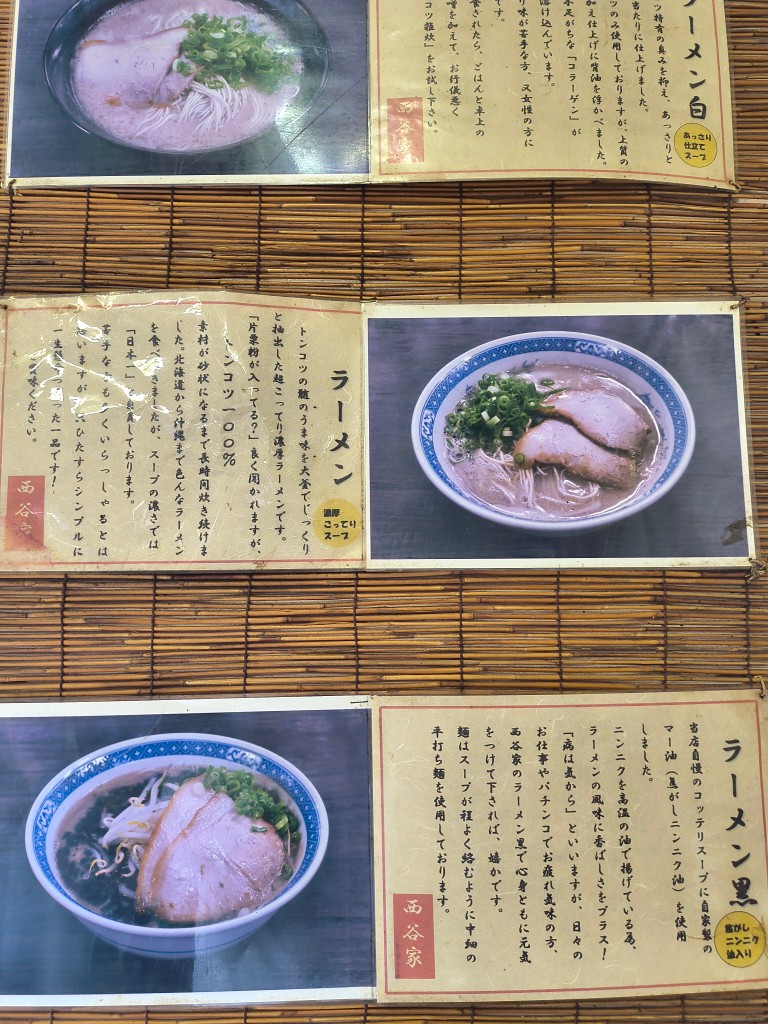 ラーメン白
あっさり
仕立て
スープ
ツ特有の臭みを抑え、あっさりと
当たりに仕上げました。
ツのみ使用しておりますが、上質の
加え仕上げに背油を浮かべました。
不足がちな「コラーゲン」が
溶け込んでいます。
り味が苦手な方、又女性の方に
です。
食されたら、ごはんと卓上の
噌を加えて、お行儀悪く
コツ雑炊」をお試し下さい。
西谷家
ラーメン
濃厚
こってり
スープ
トンコツの髄のうま味を大釜でじっくり
と抽出した超こってり濃厚ラーメンです。
「片栗粉が入ってる?」良く聞かれますが、
トンコツ一〇〇%
素材が砂状になるまで長時間炊き続けま
した。北海道から沖縄まで色んなラーメン
を食べ きましたが、スープの濃さでは
「日本一」と自負しております。
苦手な方も多くいらっしゃるとは
思いますが ひたすらシンプルに
一生懸 った一品です!
味ください。
西谷家
ラーメン黒
焦がし
ニンニク
油入り
当店自慢のコッテリスープに自家製の
マー油(焦がしニンニク油)を使用
しました。
ニンニクを高温の油で揚げている為、
ラーメンの風味に香ばしさをプラス!
「病は気から」といいますが、日々の
お仕事やパチンコでお疲れ気味の方、
西谷家のラーメン黒で心身ともに元気
をつけて下されば、嬉かです。
麺はスープが程よく絡むように中細の
平打ち麺を使用しております。
西谷家